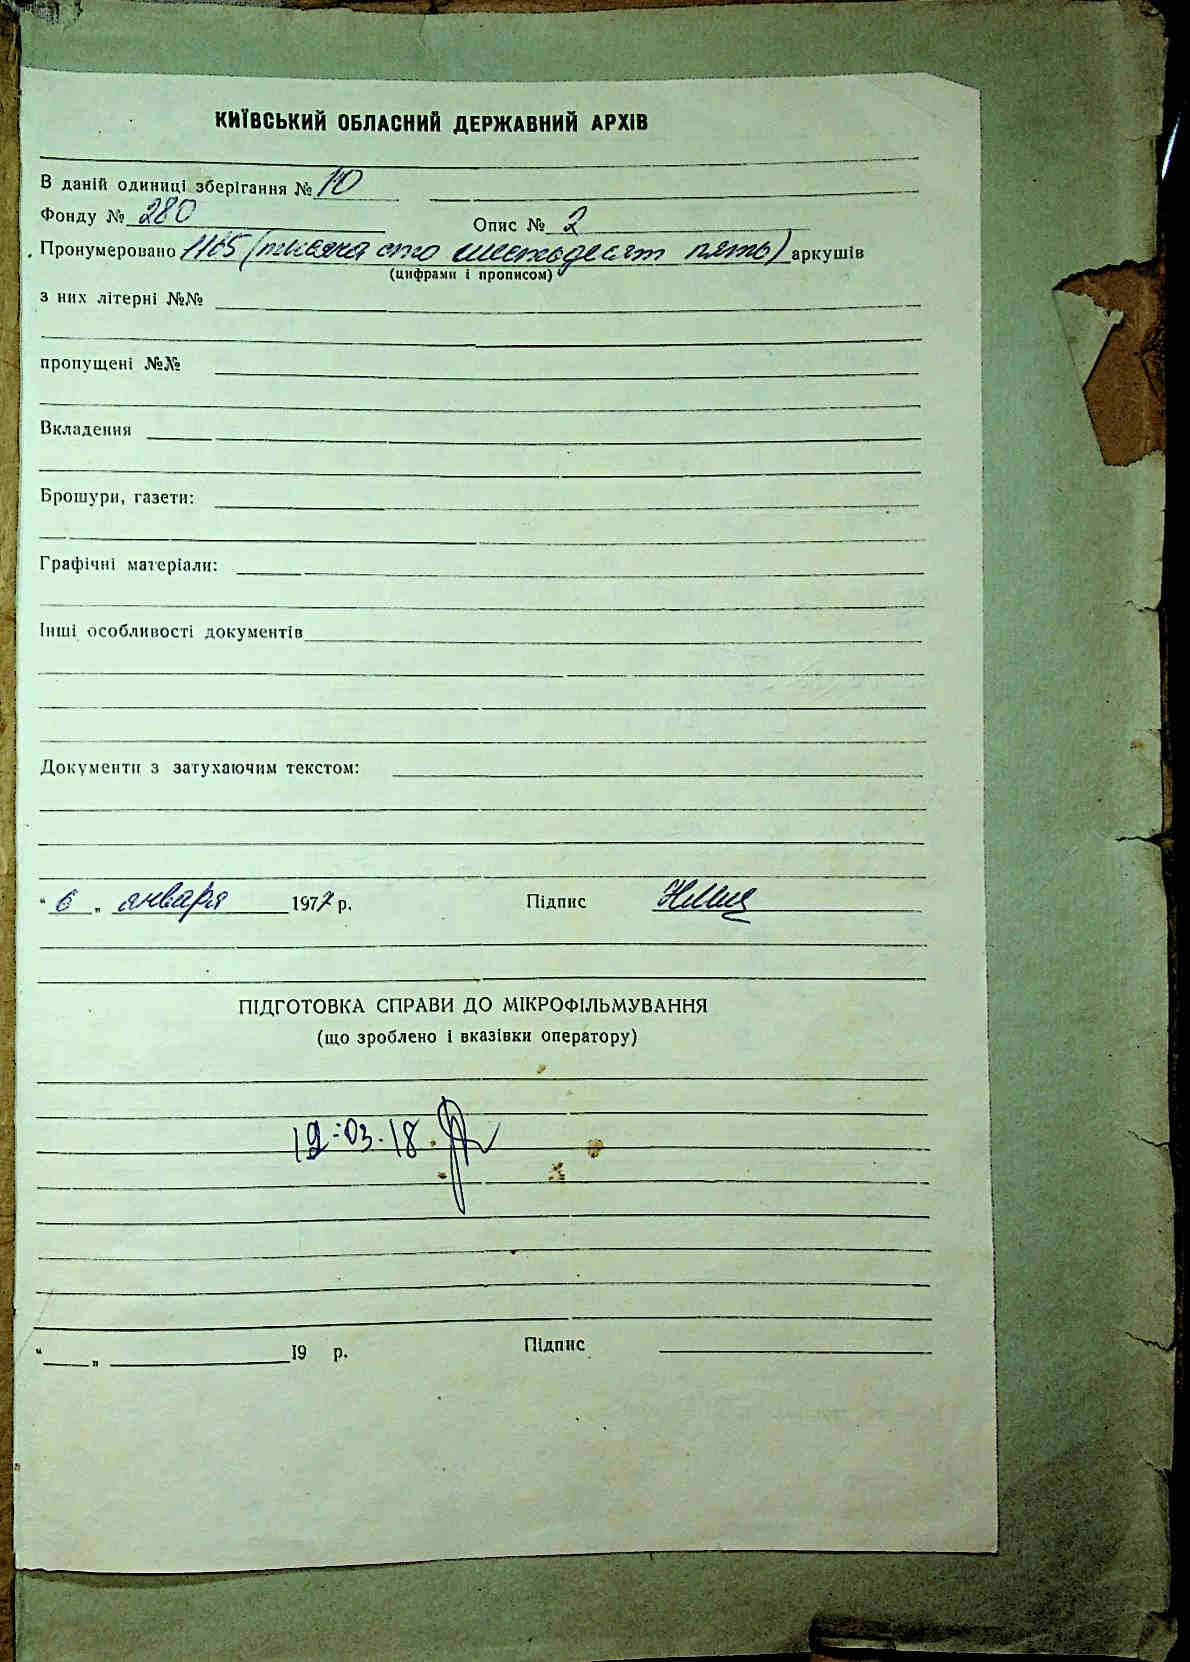 КИЇВСЬКИЙ ОБЛАСНИЙ ДЕРЖАВНИЙ АРХІВ
В даній одиниці зберігання № 10
Фонду № 280 Опис № 2
Пронумеровано 1165 (тисяча сто шестьдесят пять) аркушів
(цифрами і прописом)
з них літерні №№
пропущені №№
Вкладення
Брошури, газети:
Графічні матеріали:
Інші особливості документів
Документи з затухаючим текстом:
"6" января 1977 р. Підпис
ПІДГОТОВКА СПРАВИ ДО МІКРОФІЛЬМУВАННЯ
(що зроблено і вказівки оператору)
12.03.18.
" " 19 р. Підпис